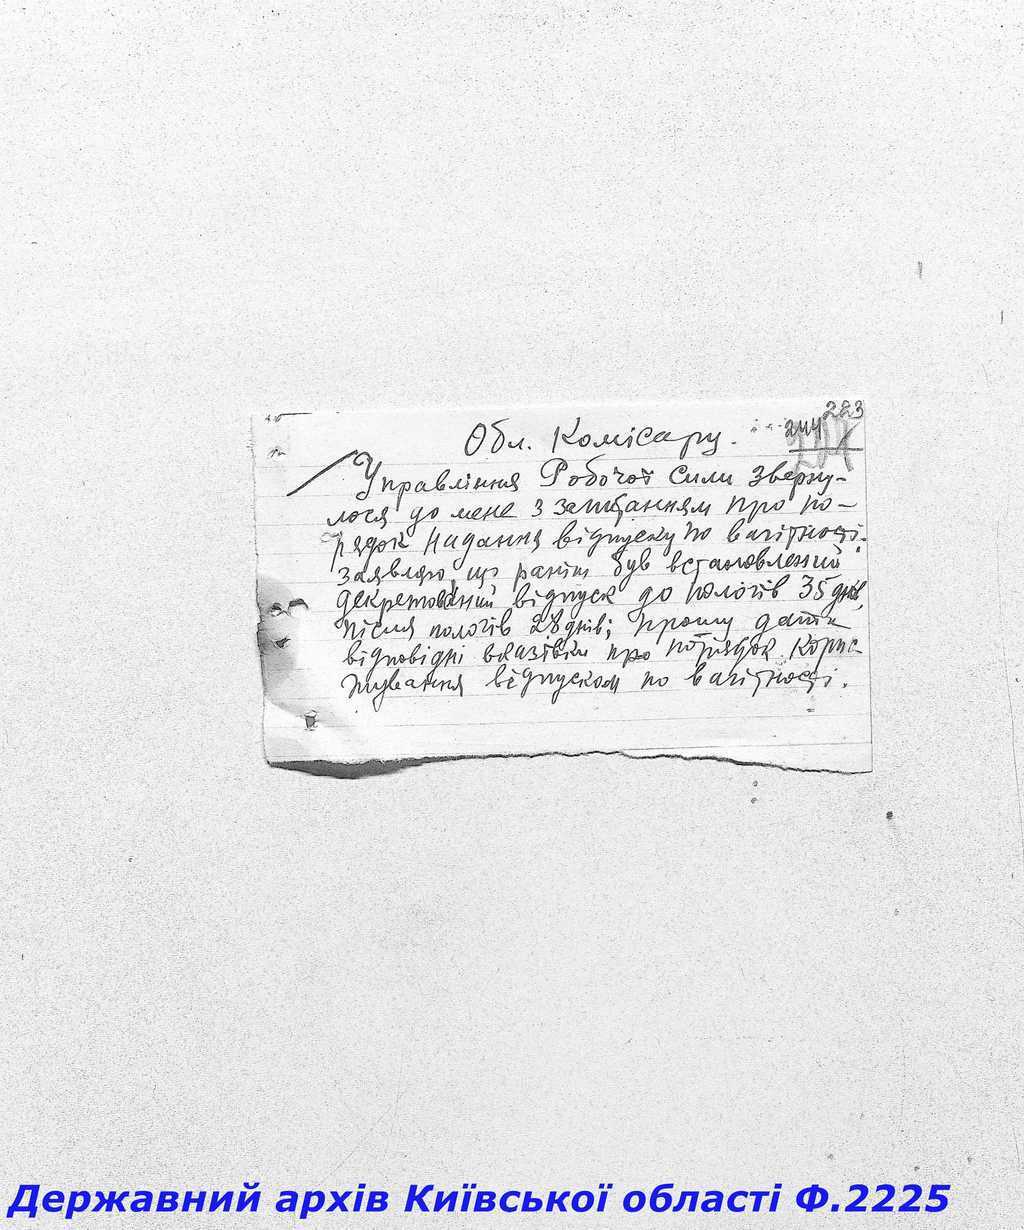 223
244
Обл. Комісару.
Управління Робочої Сили зверну-
лося до мене з запитанням про по-
рядок надання відпуску по вагітності.
Заявляю, що раніш був встановлений
декретований відпуск до пологів 35 днів,
після пологів 28 днів; прошу дати
відповідні вказівки про порядок корис-
тування відпуском по вагітності.
Державний архів Київської області Ф.2225